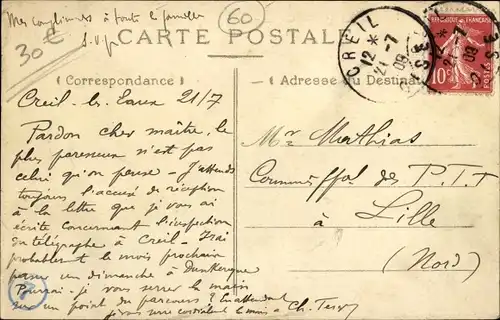 Mes compliments à toute la famille
S.V.P
30€
60
CARTE POSTALE
(Correspondance)
Adresse du Destinataire
CREIL
12 *
21 -7
09
OISE
RÉPUBLIQUE FRANÇAISE
10
POSTES
Creil-les-Eaux 21/7
Pardon cher maître, le
plus paresseux n'est pas
celui qu'on pense - J'attends
toujours l'accusé de réception
à la lettre que je vous ai
écrite concernant l'inspection
du télégraphe à Creil - J'irai
probablement le mois prochain
passer un dimanche à Dunkerque
Pourrai-je vous serrer la main
sur un point du parcours? En attendant
je vous serre cordialement la main
Ch.
Mr. Mathias
Commis ppal des P.T.T
à Lille
(Nord)